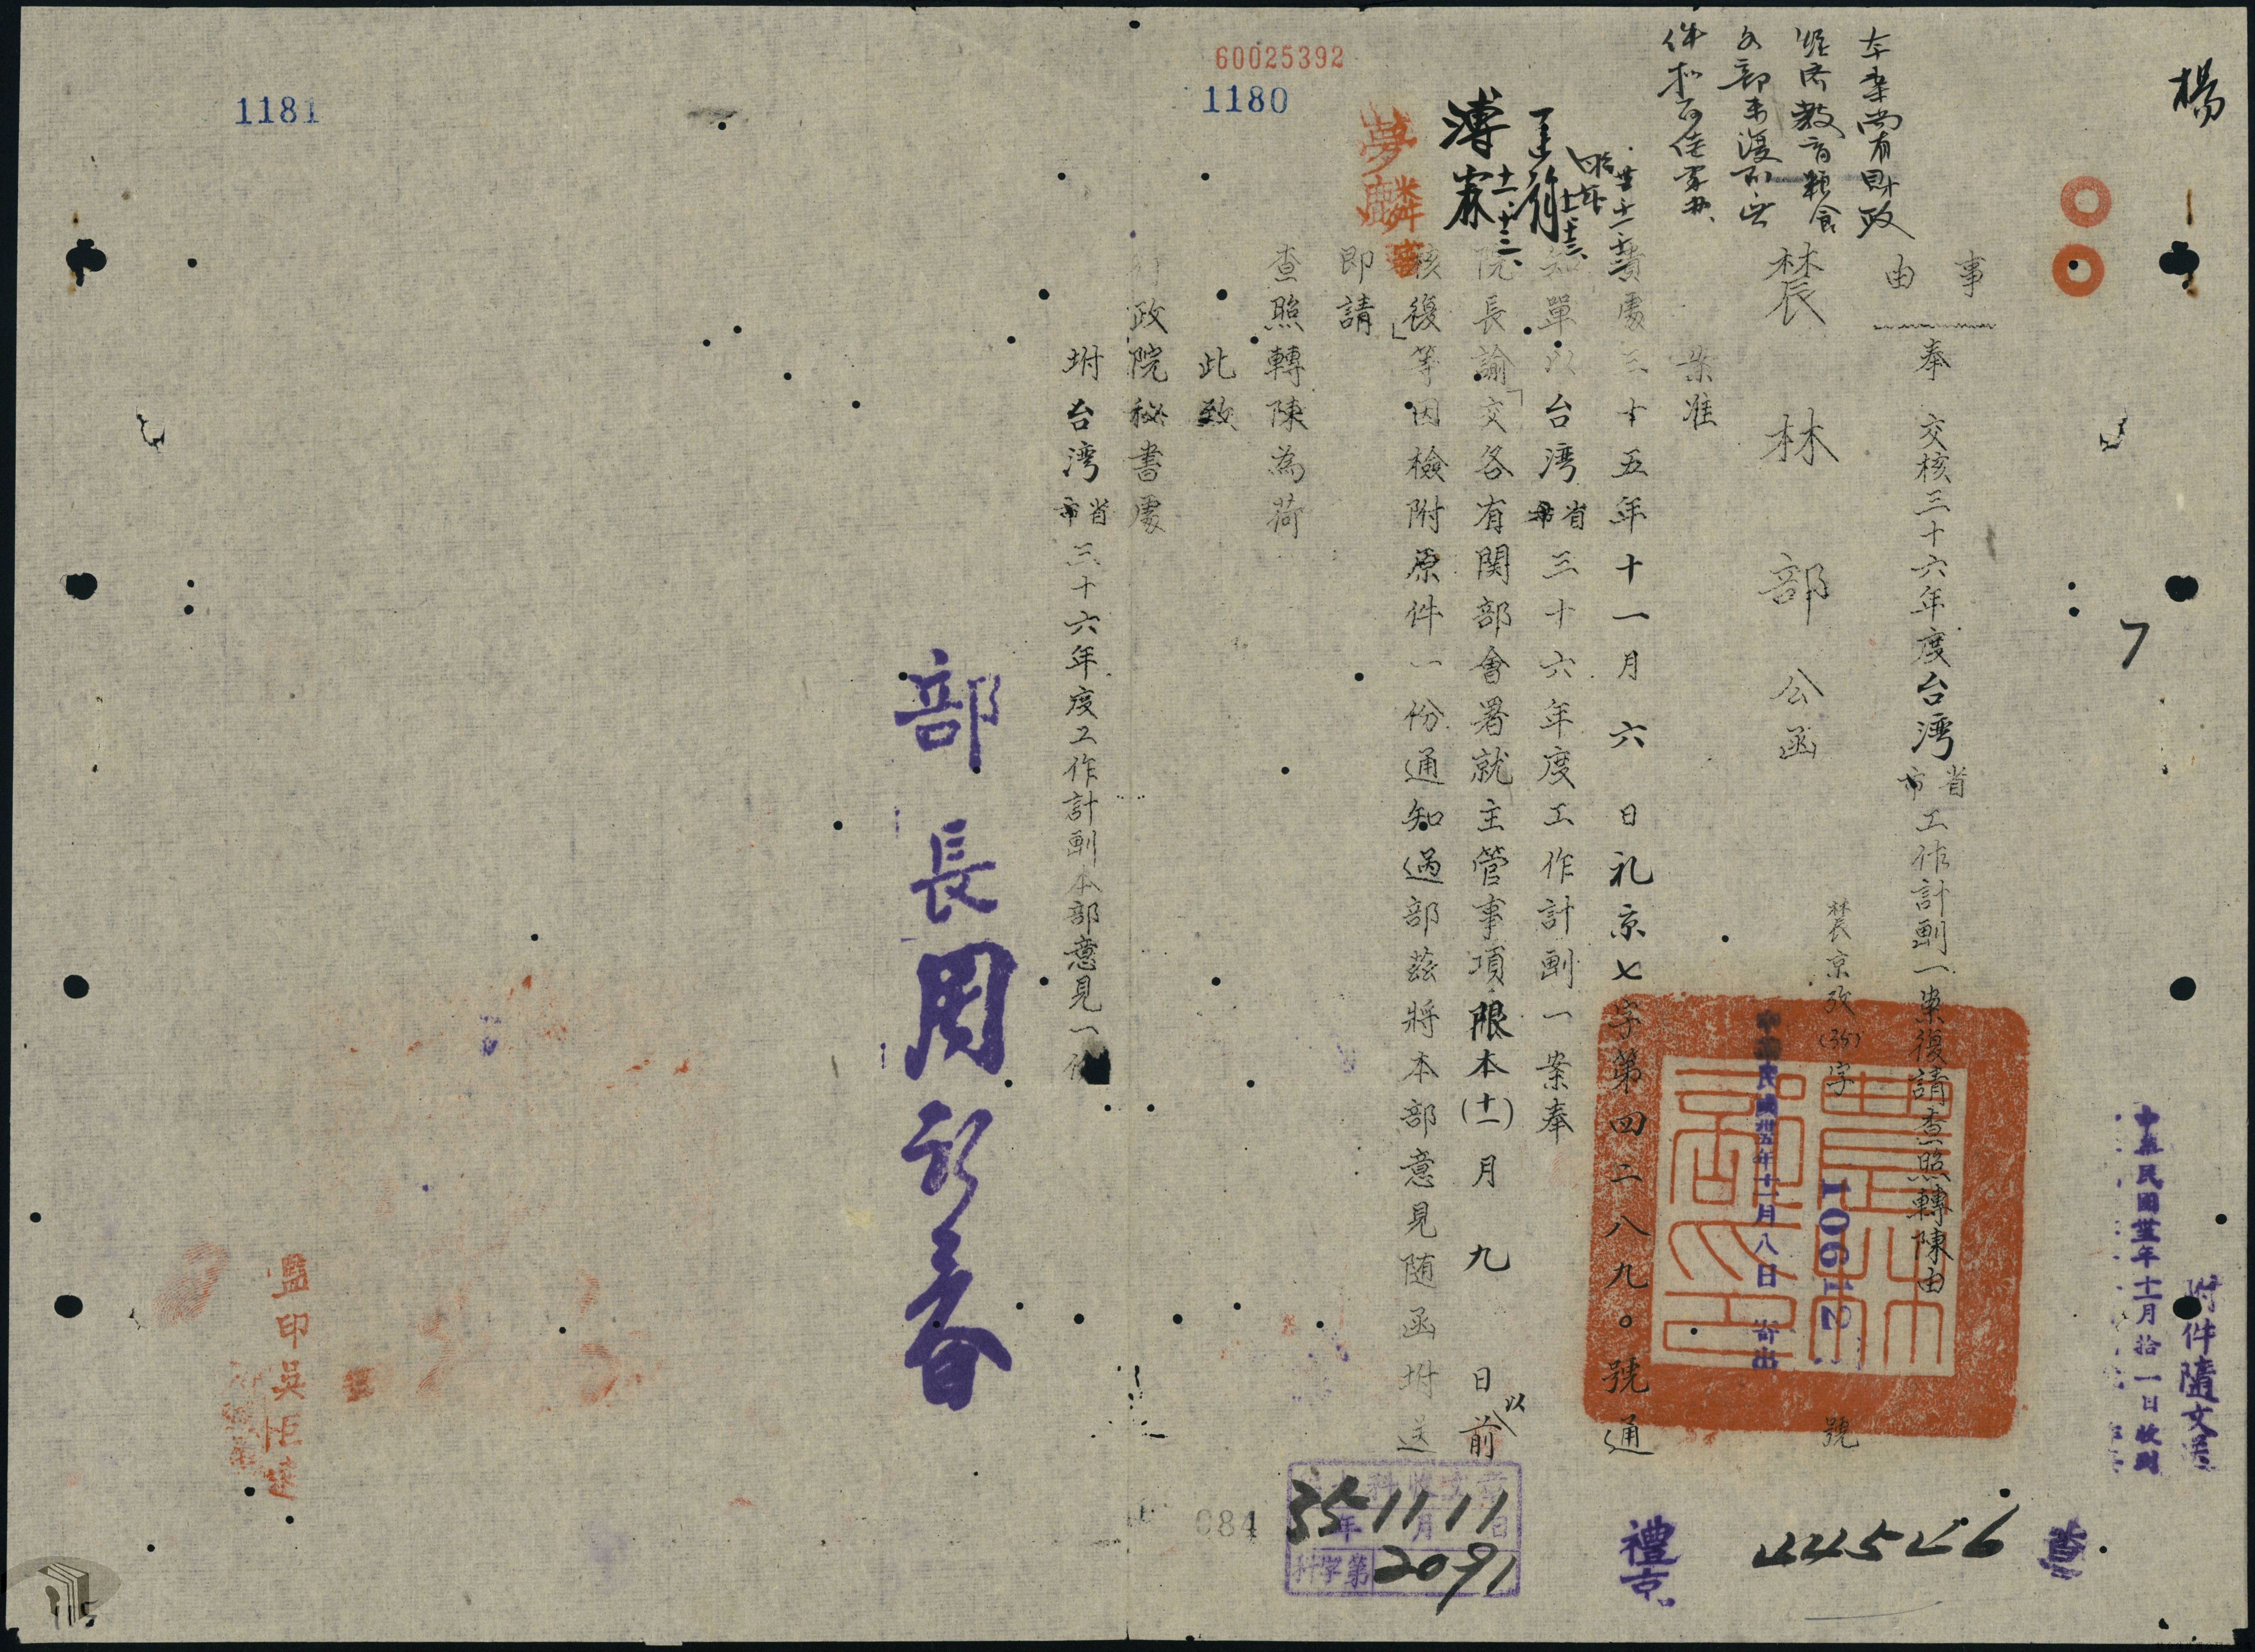 楊
本案尚有財政
經濟教育糧食
各部未復
事
由
奉 交核三十六年度台湾省市工作計劃一案復請查照轉陳由
農林部公函
農京攷(35)字 10612 號
中華民國卅五年十一月八日 寄出
案准
貴處三十五年十一月六日礼京七字第四二八九〇號通
知單以台湾省市三十六年度工作計劃一案奉
院長諭「交各有関部會署就主管事項限本(十一)月九日以前
核復」等因檢附原件一份通知過部茲將本部意見随函坿送
即請
查照轉陳為荷
此致
行政院秘書處
坿台湾省市三十六年度工作計劃本部意見一份
部長周詒春
監印吳恒
60025392
1180
1181
夢麟
十一、十三、
7
附件隨文送
中華民國卅五年十一月拾一日收到
44566
禮京
查
35年11月11日
科字第2091
084